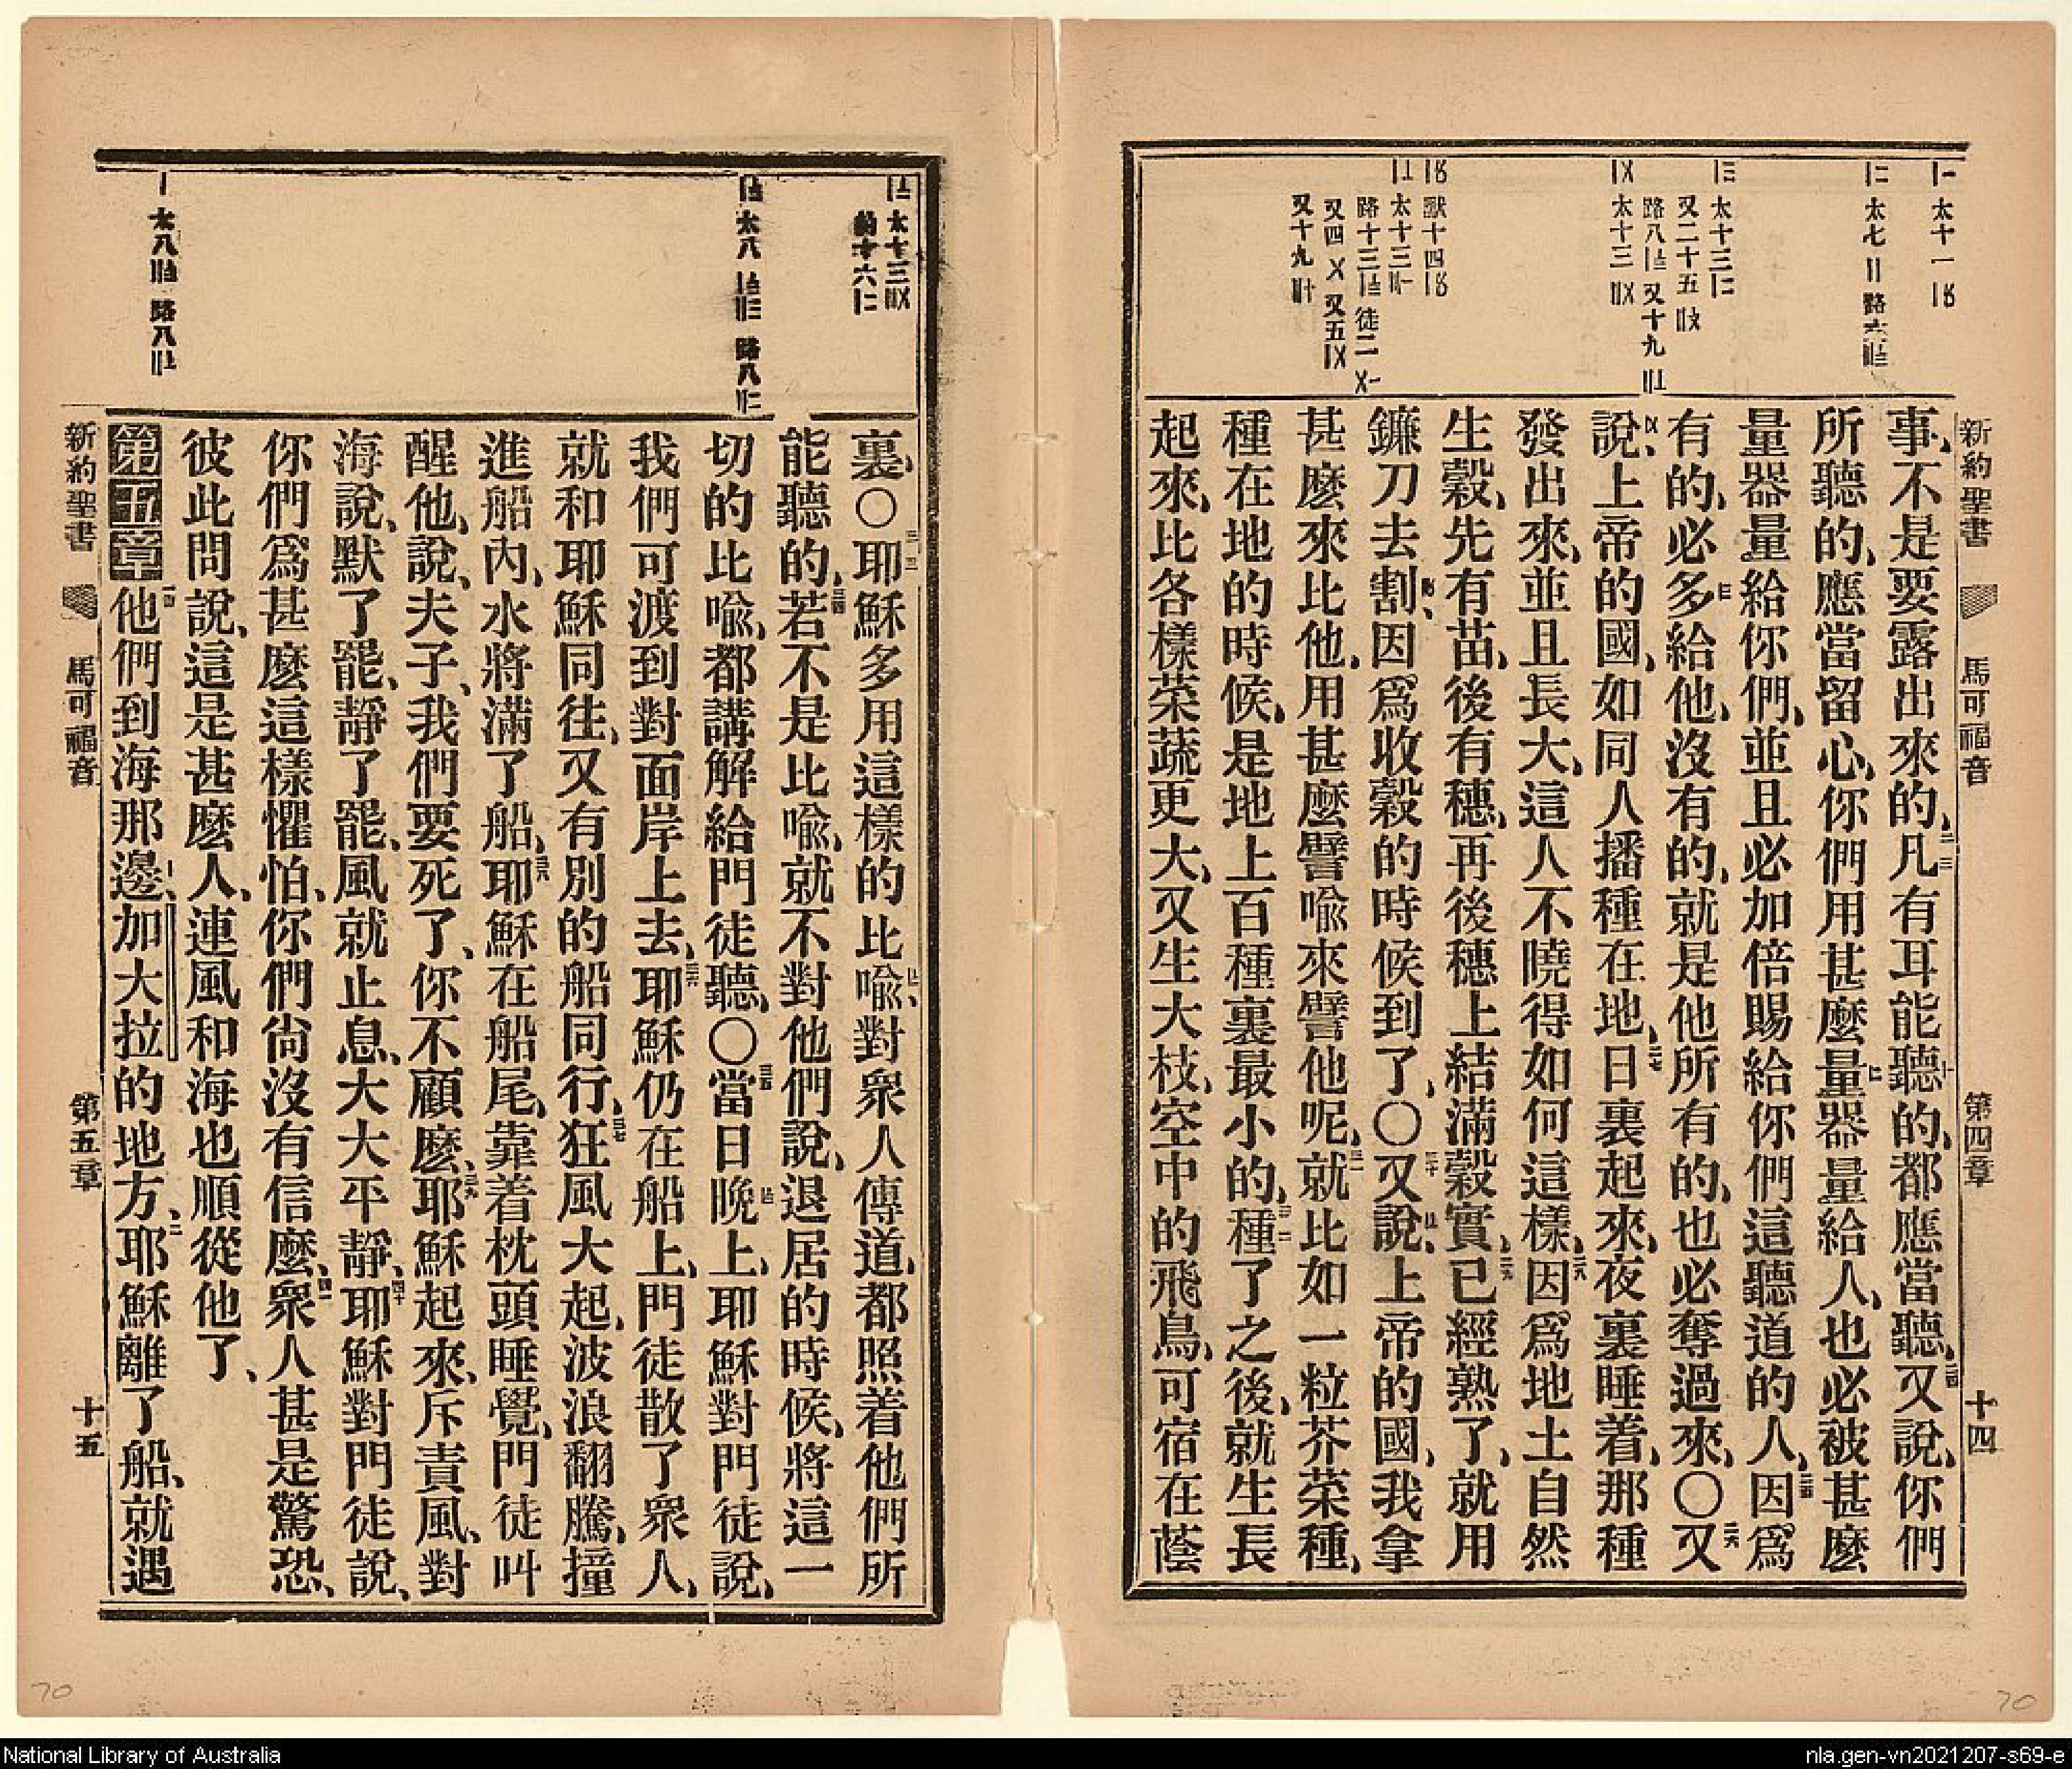 新約聖書 馬可福音 第四章 十四
一 太十一 
二 太七 路六
三 太十三
又二十五
路八 又十九
太十三
獸十四
太十三
路十三 徒二
又四 又五
又十九
事、不是要露出來的、凡有耳能聽的、都應當聽、又說、你們
所聽的、應當留心、你們用甚麼量器量給人、也必被甚麼
量器量給你們、並且必加倍賜給你們這聽道的人、因爲
有的、必多給他、沒有的、就是他所有的、也必奪過來、○又
說、上帝的國、如同人播種在地、日裏起來、夜裏睡着、那種
發出來、並且長大、這人不曉得如何這樣、因爲地土自然
生穀、先有苗、後有穗、再後穗上結滿穀實、已經熟了、就用
鐮刀去割、因爲收穀的時候到了、○又說、上帝的國、我拿
甚麼來比他、用甚麼譬喩來譬他呢、就比如一粒芥菜種、
種在地的時候、是地上百種裏最小的、種了之後、就生長
起來、比各樣菜蔬更大、又生大枝、空中的飛鳥、可宿在蔭
太十三
約十六
太八 路八
太八 路八
裏○耶穌多用這樣的比喩、對衆人傳道、都照着他們所
能聽的、若不是比喩、就不對他們說、退居的時候、將這一
切的比喩、都講解給門徒聽、○當日晚上、耶穌對門徒說、
我們可渡到對面岸上去、耶穌仍在船上、門徒散了衆人、
就和耶穌同往、又有別的船同行、狂風大起、波浪翻騰、撞
進船內、水將滿了船、耶穌在船尾、靠着枕頭睡覺、門徒叫
醒他、說、夫子、我們要死了、你不顧麼、耶穌起來、斥責風、對
海說、默了罷、靜了罷、風就止息、大大平靜、耶穌對門徒說、
你們爲甚麼這樣懼怕、你們尙沒有信麼、衆人甚是驚恐、
彼此問說、這是甚麼人、連風和海也順從他了、
第五章 他們到海那邊、加大拉的地方、耶穌離了船、就遇
新約聖書 馬可福音 第五章 十五
70
70
National Library of Australia
nla.gen-vn2021207-s69-e